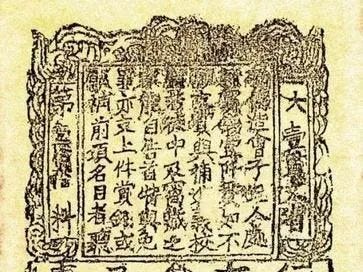 大壹貫文省
敕偽造會子犯人處
斬賞錢壹阡貫如不
願支賞與補進義校
尉若徒中及窩藏之
家能自告首特與免
罪亦支上件賞錢或
願補前項名目者聽
第料